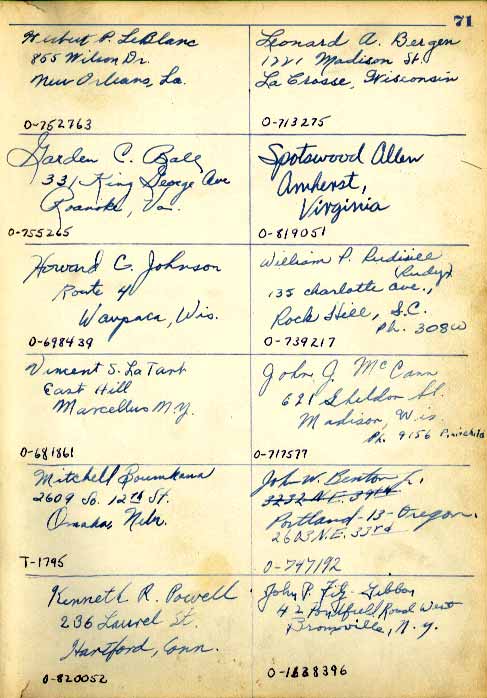 71
Herbert P. LeBlanc
855 Wilson Dr.
New Orleans, La.
O-752763
Leonard A. Bergen
1221 Madison St.
La Crosse, Wisconsin
O-713275
Garden C. Ball
331 King George Ave
Roanoke, Va.
O-755265
Spotswood Allen
Amherst,
Virginia
O-819051
Howard C. Johnson
Route 4
Waupaca, Wis.
O-698439
William P. Rudisill
(Rudy)
135 Charlotte Ave.,
Rock Hill, S.C.
Ph. 308W
O-739217
Vincent S. LaTart
East Hill
Marcellus N.Y.
O-681861
John J. McCann
621 Sheldon St.
Madison, Wis.
Ph. 9156
O-717577
Mitchell
2609 So. 12th St.
Omaha, Nebr.
T-1795
John W. Benton Jr.
3232 N.E. 39th
Portland-13-Oregon.
2603 N.E. 33rd
O-747192
Kenneth R. Powell
236 Laurel St.
Hartford, Conn.
O-820052
John P. Fitz-Gibbon
42 Pondfield Road West
Bronxville, N.Y.
O-1638396